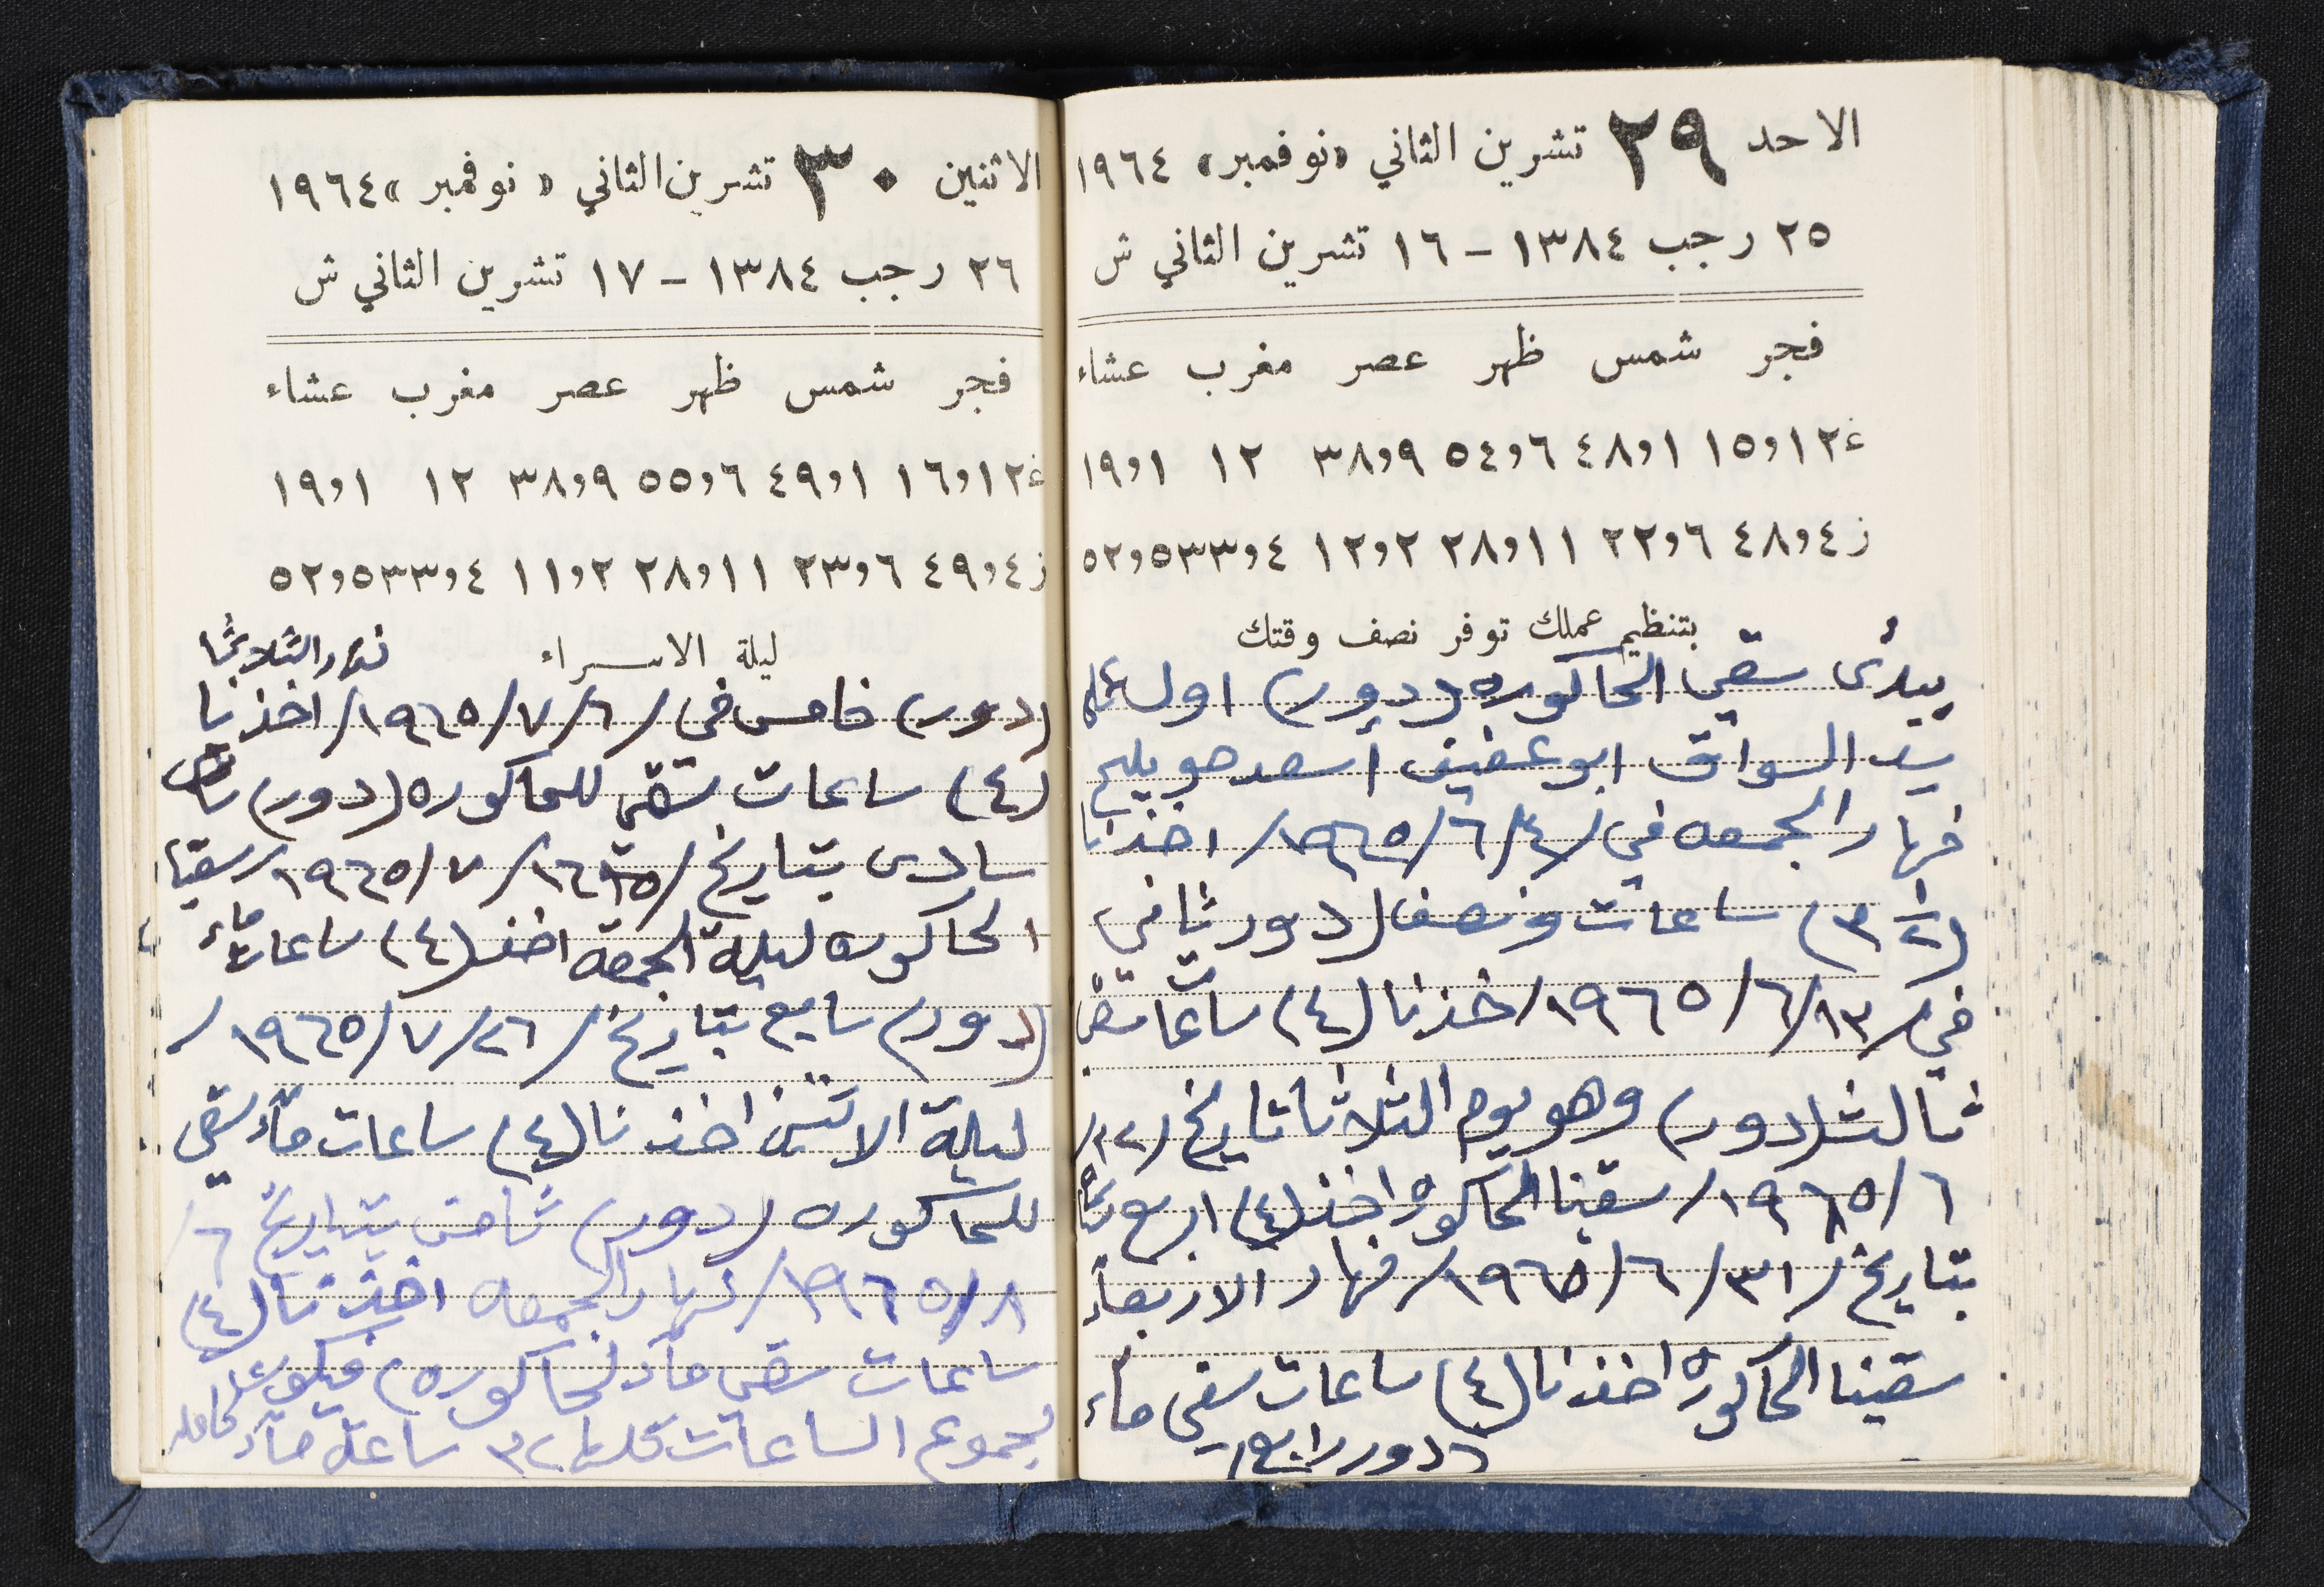 الاحد ٢٩ تشرين الثاني «نوفمبر» ١٩٦٤
٢٥ رجب ١٣٨٤ – ١٦ تشرين الثاني ش
فجر شمس ظهر عصر مغرب عشاء
غ ١٢و١٥ ١و٤٨ ٦و٥٤ ٩و٣٨ ١٢ ١و١٩
ز ٤و٤٨ ٦و٢٢ ١١و٢٨ ٢و١٢ ٤و٣٣ ٥و٥٢
بتنظيم عملك توفر نصف وقتك
يبدئ سقي الحاكوره (دور) اول على
يد السواق ابو عفيف اسعد حويلي
نهار الجمعه في /٤/٦/١٩٦٥/ اخذنا
(٣ ١/٢) ساعات ونصف (دور ثاني
في /١٣/٦/١٩٦٥/ خذنا (٤) ساعات سقي
ثالث (دور) وهو يوم الثلاثا تاريخ (٢٢/
٦/١٩٦٥/ سقينا الحاكوره اخذ (٤) اربع
بتاريخ /٣١/٦/١٩٦٥/ نهار الاربعاء
سقينا الحاكوره اخذنا (٤) ساعات سقي ماء
(دور رابع)
الاثنين ٣٠ تشرين الثاني «نوفمبر» ١٩٦٤
٢٦ رجب ١٣٨٤ – ١٧ تشرين الثاني ش
فجر شمس ظهر عصر مغرب عشاء
غ ١٢و١٦ ١و٤٩ ٦و٥٥ ٩و٣٨ ١٢ ١و١٩
ز ٤و٤٩ ٦و٢٣ ١١و٢٨ ٢و١١ ٤و٣٣ ٥و٥٢
ليلة الاسراء نهار الثلاثا
(دور) خامس في /٦/٧/١٩٦٥/ اخذنا
(٤) ساعات سقي للحاكوره (دور)
سادس بتاريخ /١٦/٧/١٩٦٥/ سقينا
الحاكوره ليلة الجمعه اخذ (٤) ساعات ماء
(دور) سابع بتاريخ /٢٦/٧/١٩٦٥/
ليلة الاثنين اخذنا (٤) ساعات ماء سقي
للحاكوره (دور) ثامن بتاريخ ٦/
٨/١٩٦٥/ نهار الجمعه اخذنا (٤)
ساعات سقي ماء لحاكوره) فيكون
مجموع الساعات كلها ٣٢ ساعة ماء كامله